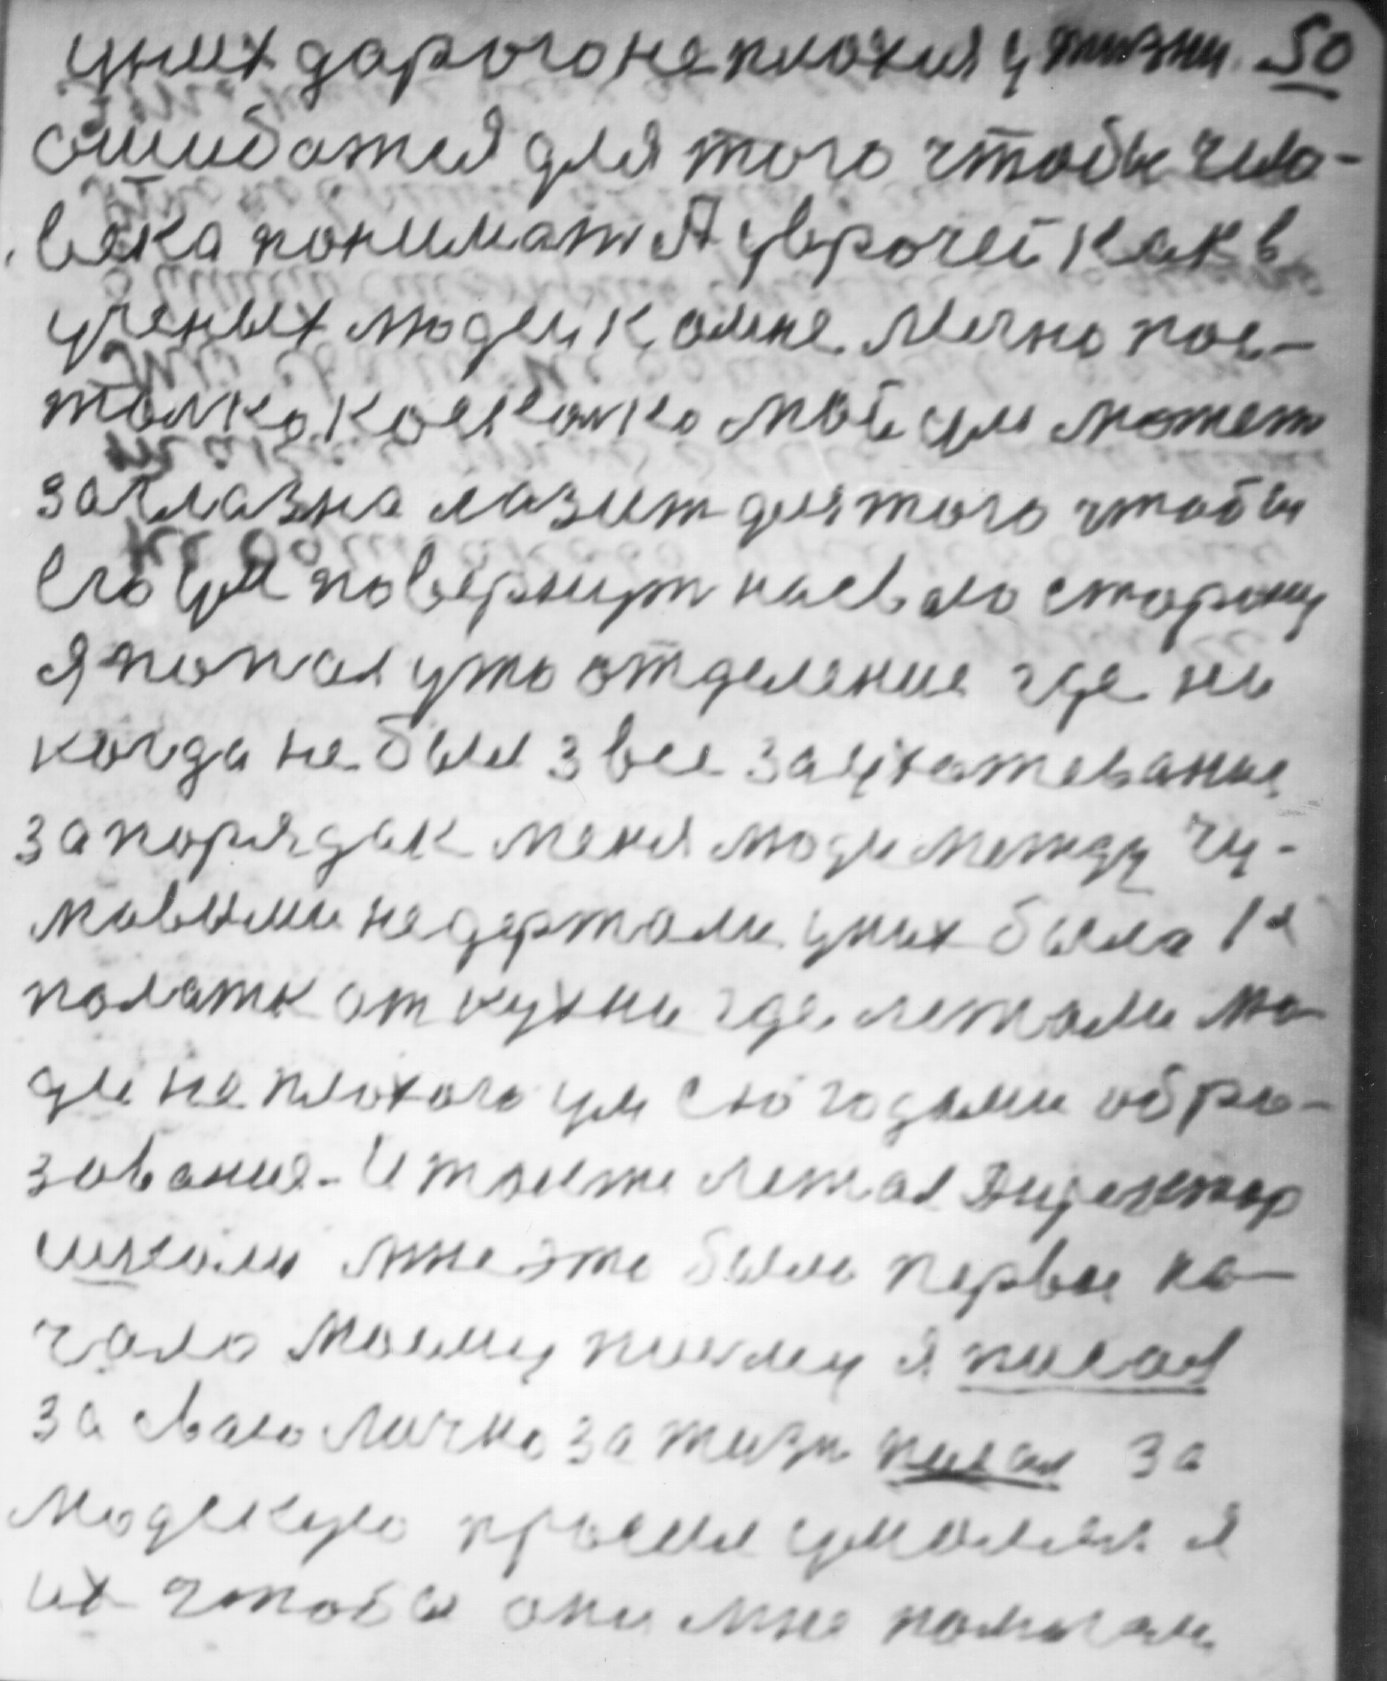 у них дарога не плохия у жизни 50
ошибатся для того чтобы чило-
века понимат А уврочей как в
ученых людей ко мне лично пос-
толко косколко мой ум может
заглазна лазит для того чтобы
его ум повернут на сваю сторону
я попал уто отделение где ни
когда не был з все заухотевание
за порядак меня люди между чу-
мовыми не держали у них была 1я
полатк от кухни где лежали лю-
ди не плохого ум с 10 годами обра-
зования - И там же лежал Директор
школи мне это было первые на-
чало моему писму я писал
за сваю лично за жизн писал за
людскую просил умолял я
их чтобы они мне помогали